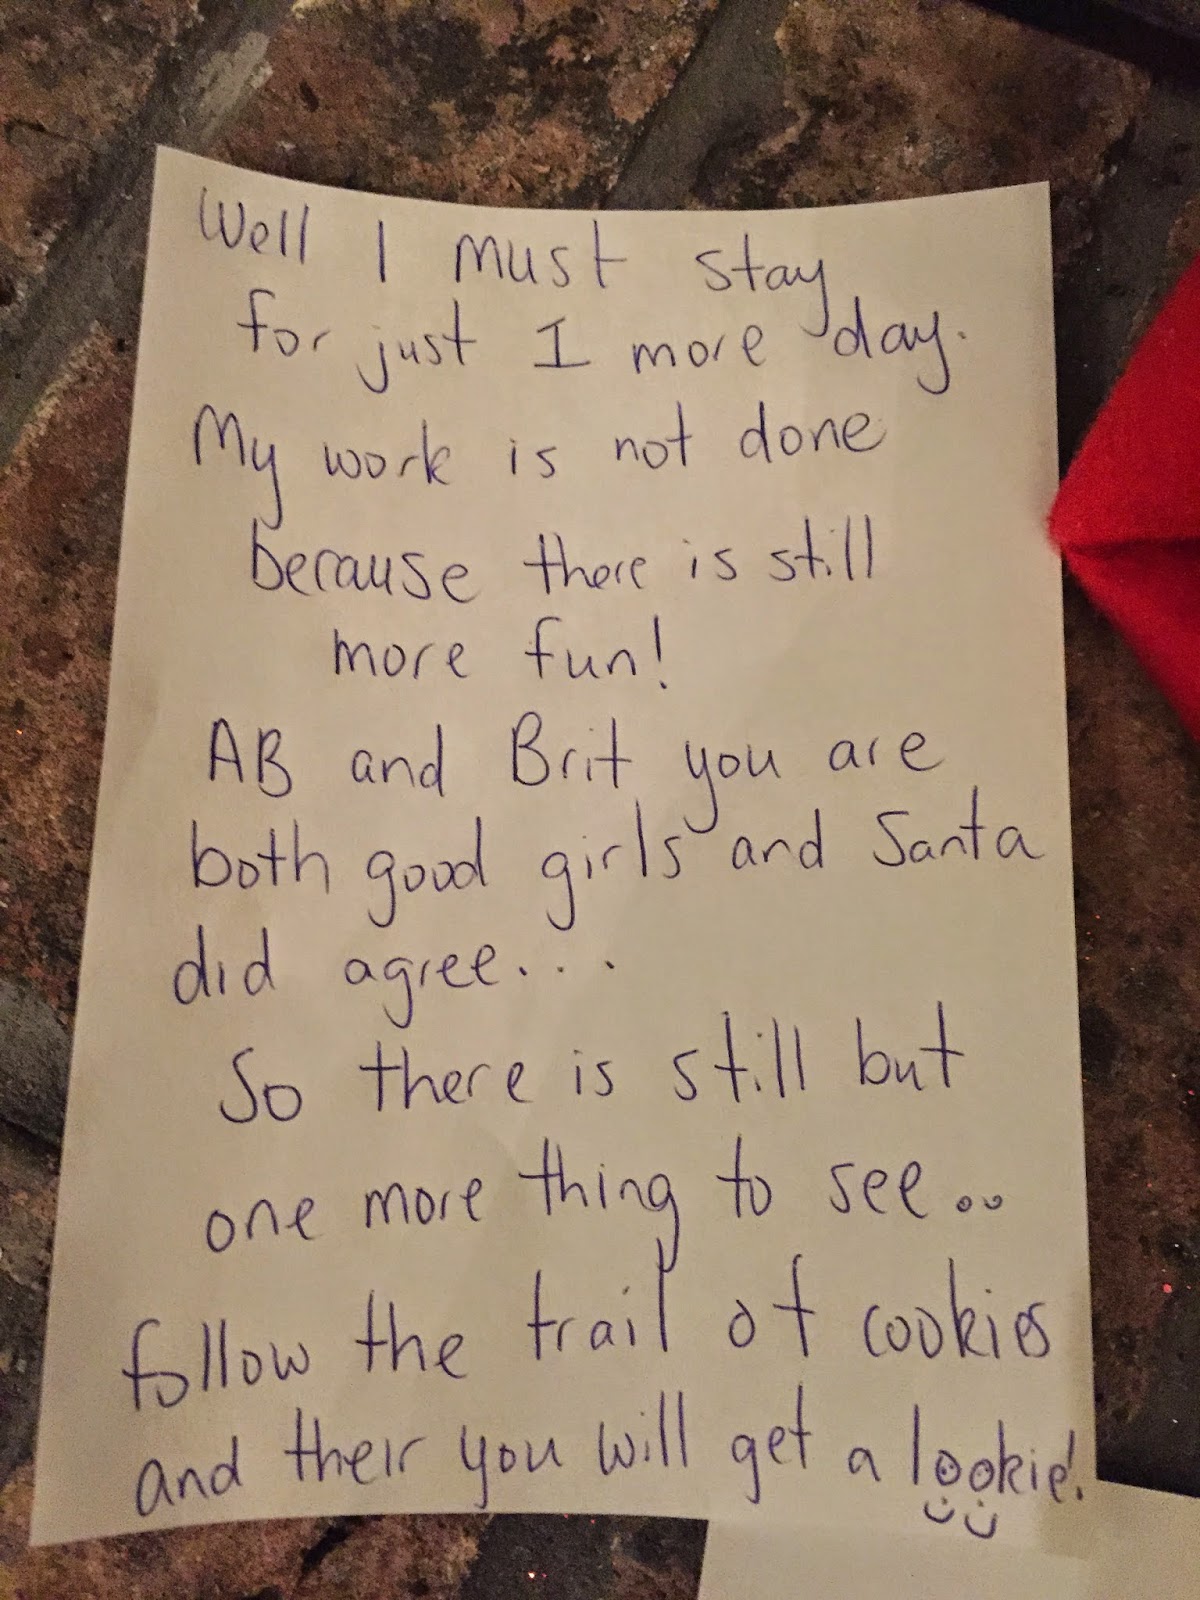 Well I must stay
for just 1 more day.
My work is not done
because there is still
more fun!
AB and Brit you are
both good girls and Santa
did agree...
So there is still but
one more thing to see...
follow the trail of cookies
and their you will get a lookie!